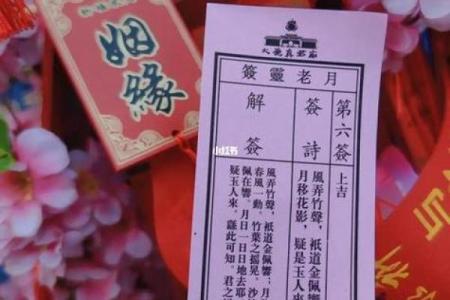 姻緣
月老靈簽
第六簽
上吉
簽詩
風弄竹聲，祇道金佩響
月移花影，疑是玉人來
解簽
風弄竹聲，祇道金佩響；月
春風一動。竹葉之搖晃。沙
佩在響。月日一日日地去耶
疑玉人來。繇此可知。君之
小红书